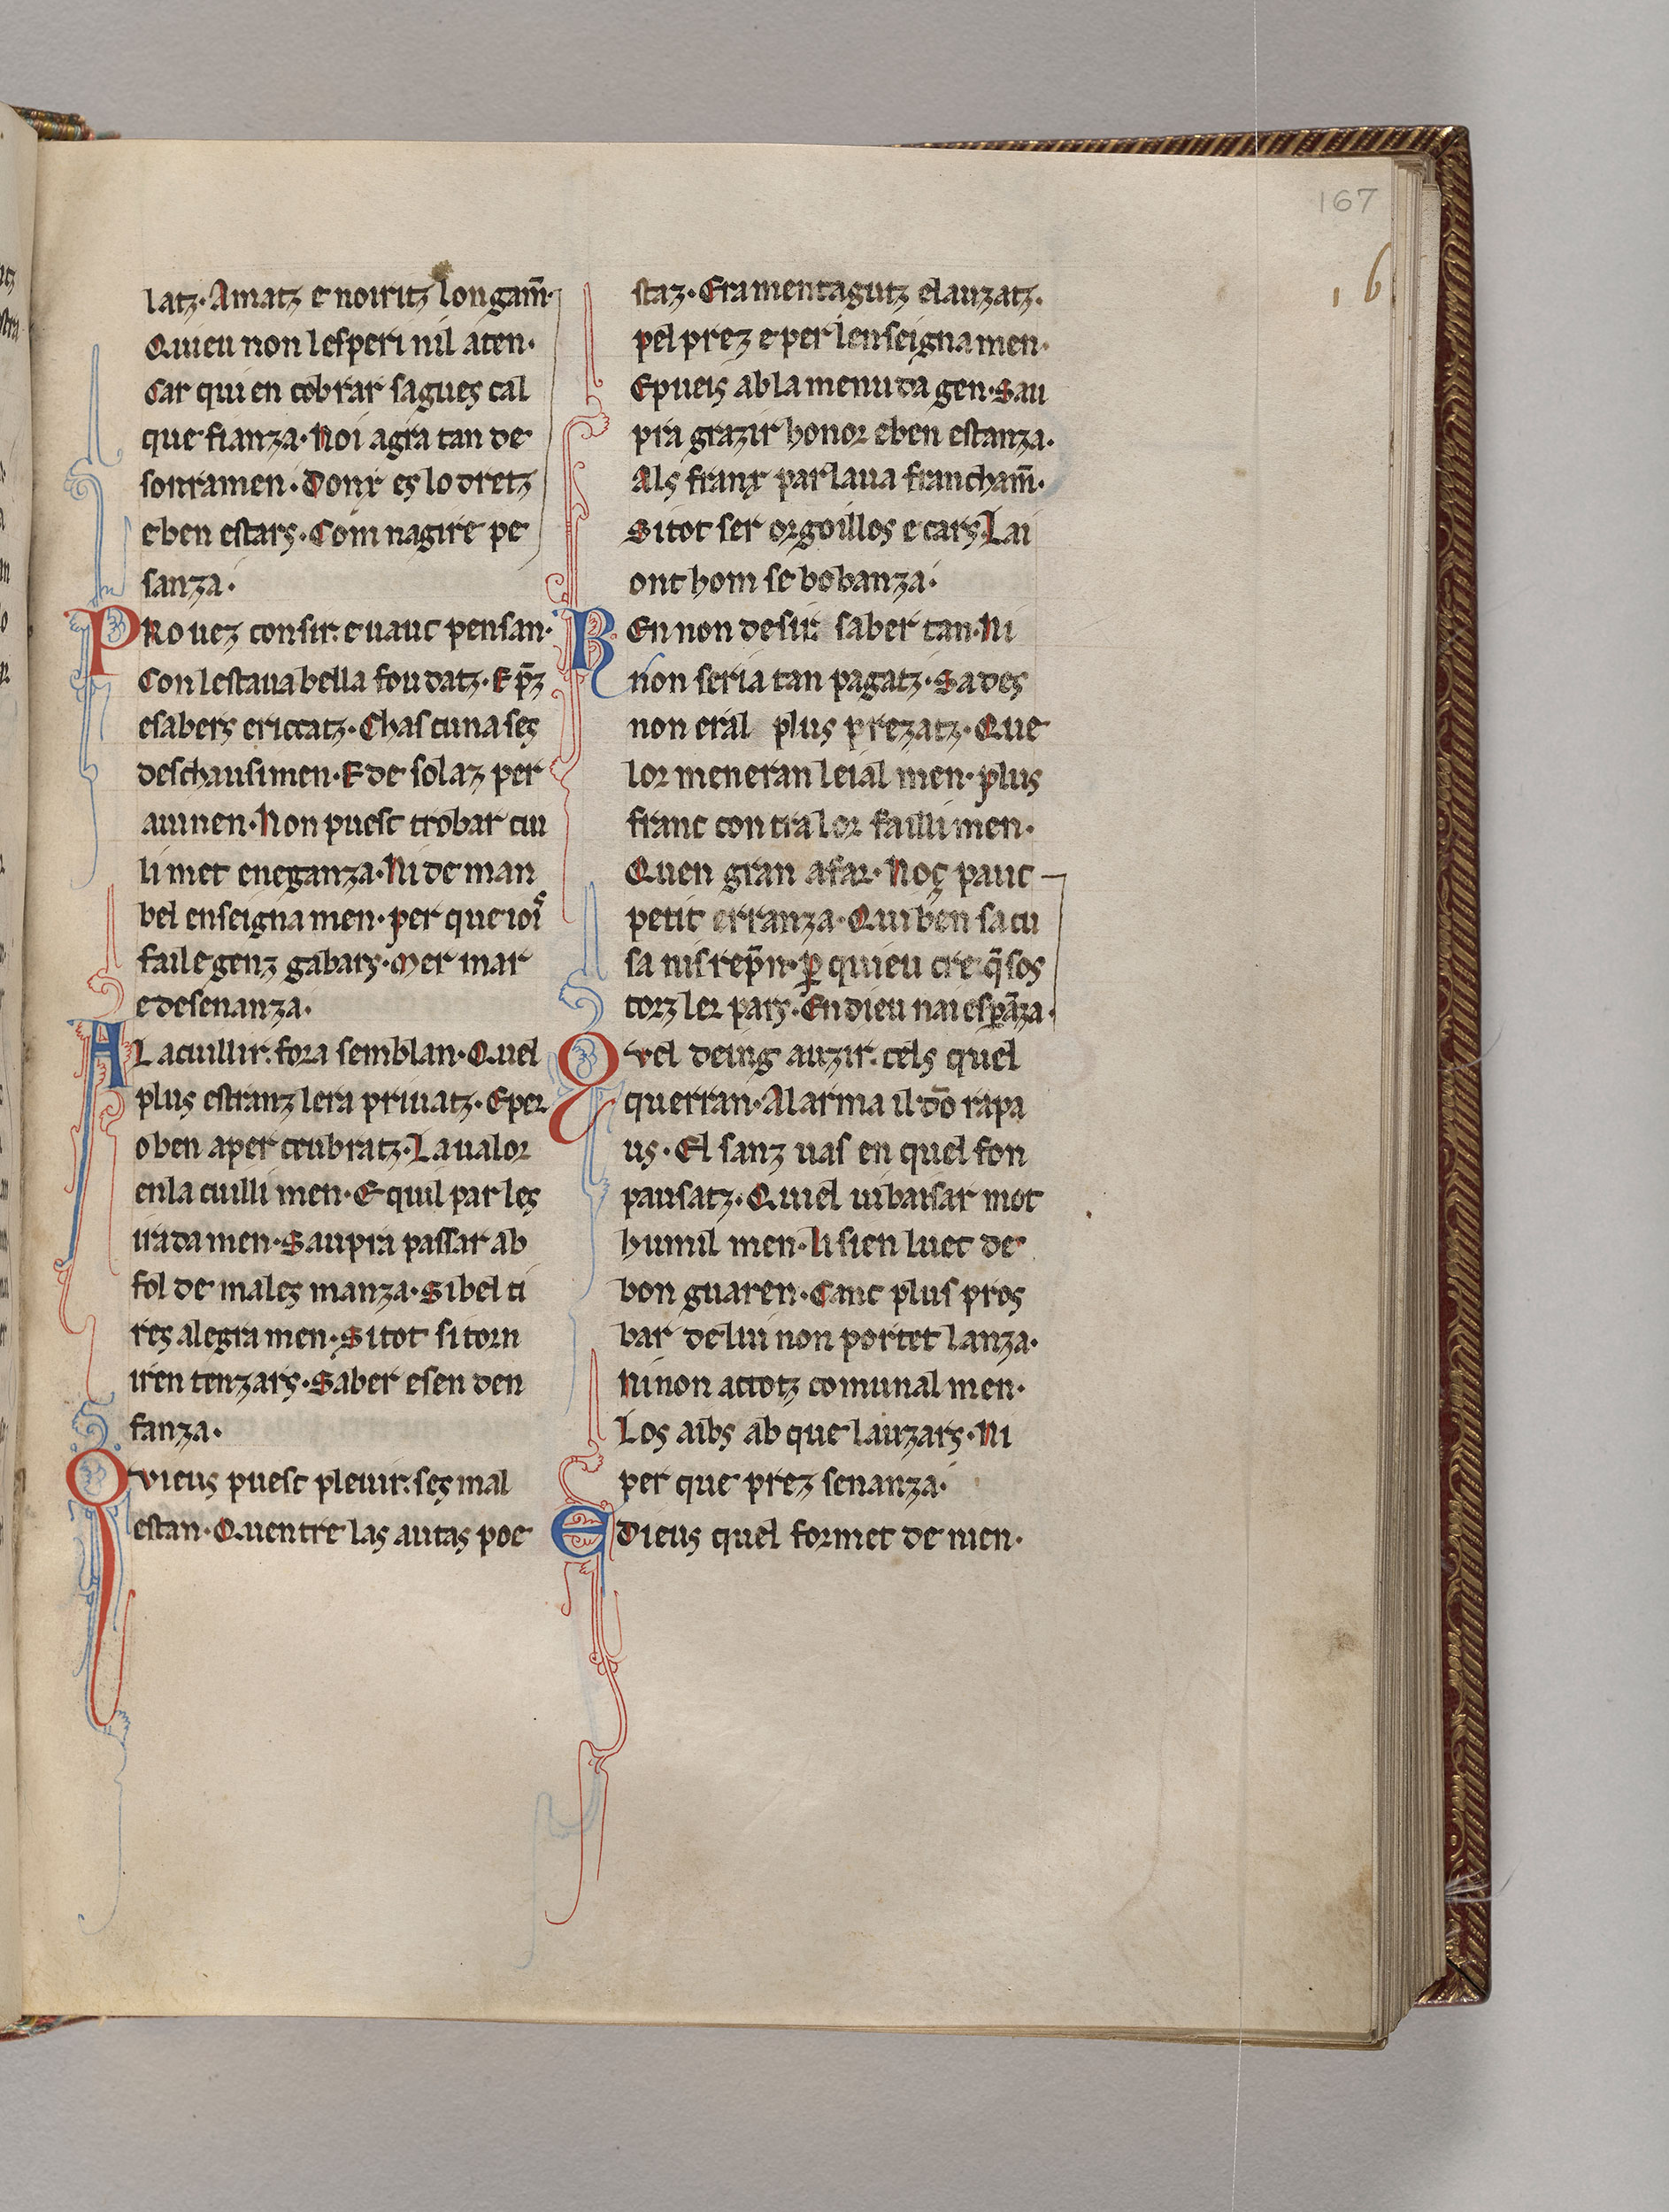 167
16
latz· Amatz e noiritz longam̄·
Quieu non lesperi nil aten·
Car qui en cobrar sagues cal
que fianza· Noi agra tan de
sonramen· Donx es lo dretz
e ben estars· Com nagire pe
sanza·
PRo uez consir: e uauc pensan·
Con lestaua bella foudatz· E p̄z
e sabers e riccatz· Chascuna ses
deschausimen· E de solaz per
auinen· Non puesc trobar cui
li met en eganza· Ni de man
bel enseignamen· per que ioīs
fai le genz gabars· Mer mar
e desenanza·
AL acuillir: fora semblan· Quel
plus estranz lera priuatz· E per
o ben aperceubratz· La ualor
en lacuillimen· E qui l parles
iradamen· Saupra passar ab
fol de males manza· Si bel ti
res alegramen· Si tot si torn
iren tenzars· Saber e sen den
fanza·
QVieus puesc pleuir: ses mal
estan· Quentre las autas poe
staz· Era mentagutz e lauzatz·
pel prez e per lenseignamen·
E pueis ab la menuda gen· Sau
pra grazir honor e ben estanza·
Als franx parlaua francham̄·
Si tot ser orgoillos e cars· Lai
ont hom se bobanza·
REn non desir: saber tan· Ni
non seria tan pagatz· Sades
non eral plus prezatz· Que
lor meneran leialmen· plus
franc contra lor faillimen·
Quen gran afar· Nos pauc
petit erranza· Qui ben sacu
sa nis rep̄n· ꝑ quieu cre q̄ sos
torz ler pars· En dieu nai esꝑāza·
QVel deing auzir: cels quel
querran· Al arma il dō rapa
us· El sanz uas en quel fon
pausatz· Quiel ui baisar mot
humilmen· li sien luec de
bon guaren· Canc plus pros
bar de lui non portet lanza·
Ni non ac totz comunalmen·
Los aibs ab que lauzars· Ni
per que prez senanza·
EDieus quel formet de nien·